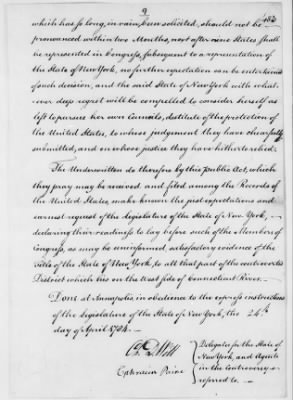 9
which has so long, in vain, been solicited, should not be
pronounced within two Months, next after nine States shall
be represented in Congress, subsequent to a representation of
the State of New York, no further expectation can be entertained
of such decision, and the said State of New York with what-
ever deep regret will be compelled to consider herself as
left to pursue her own Councils, destitute of the protection of
the United States, to whose judgement they have chearfully
submitted, and on whose justice they have hitherto relied.
The Underwritten do therefore by this public Act, which
they pray may be received and filed among the Records of
the United States, make known the just expectations and
earnest request of the Legislature of the State of New York,
declaring their readiness to lay before such of the Members of
Congress, as may be uninformed, satisfactory evidence of the
title of the State of New York, to all that part of the controverted
District which lies on the West side of Connecticut River.
Done at Annapolis in obedience to the express instructions
of the Legislature of the State of New York, the 24th
day of April 1784.
Chs DeWitt
Ephraim Paine
Delegates for the State of
New York, and Agents
in the Controversy
referred to